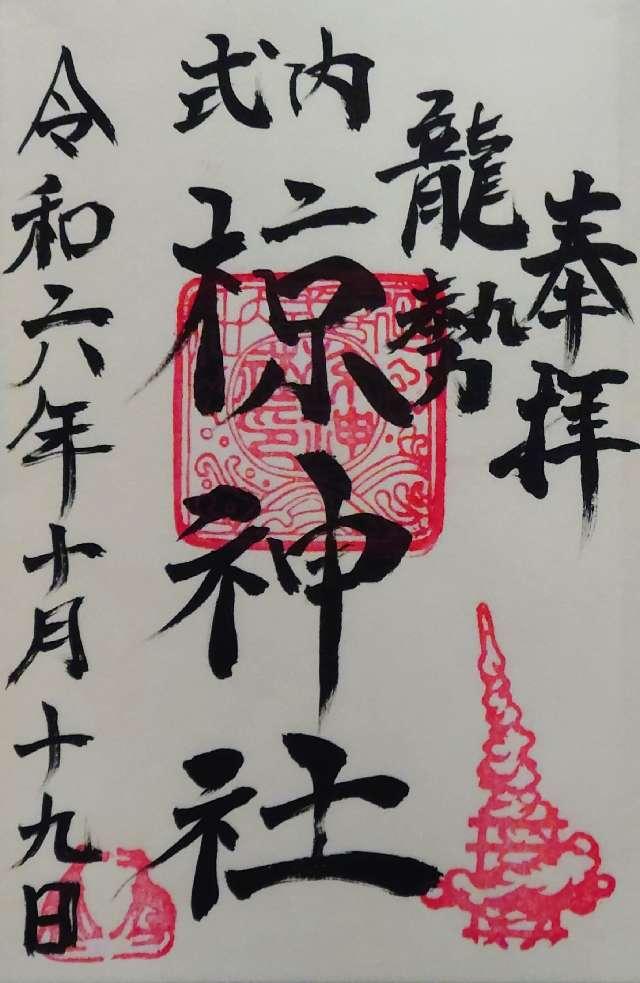 奉拝
龍勢
式内
椋神社
令和六年十月十九日